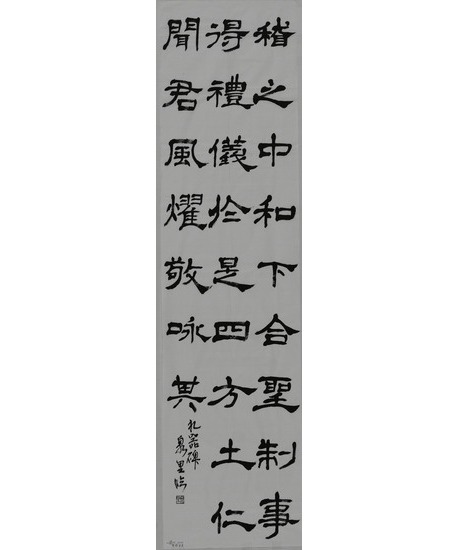 稽之中和下合聖制事
得禮儀於是四方土仁
聞君風燿敬咏其
礼器碑
里临